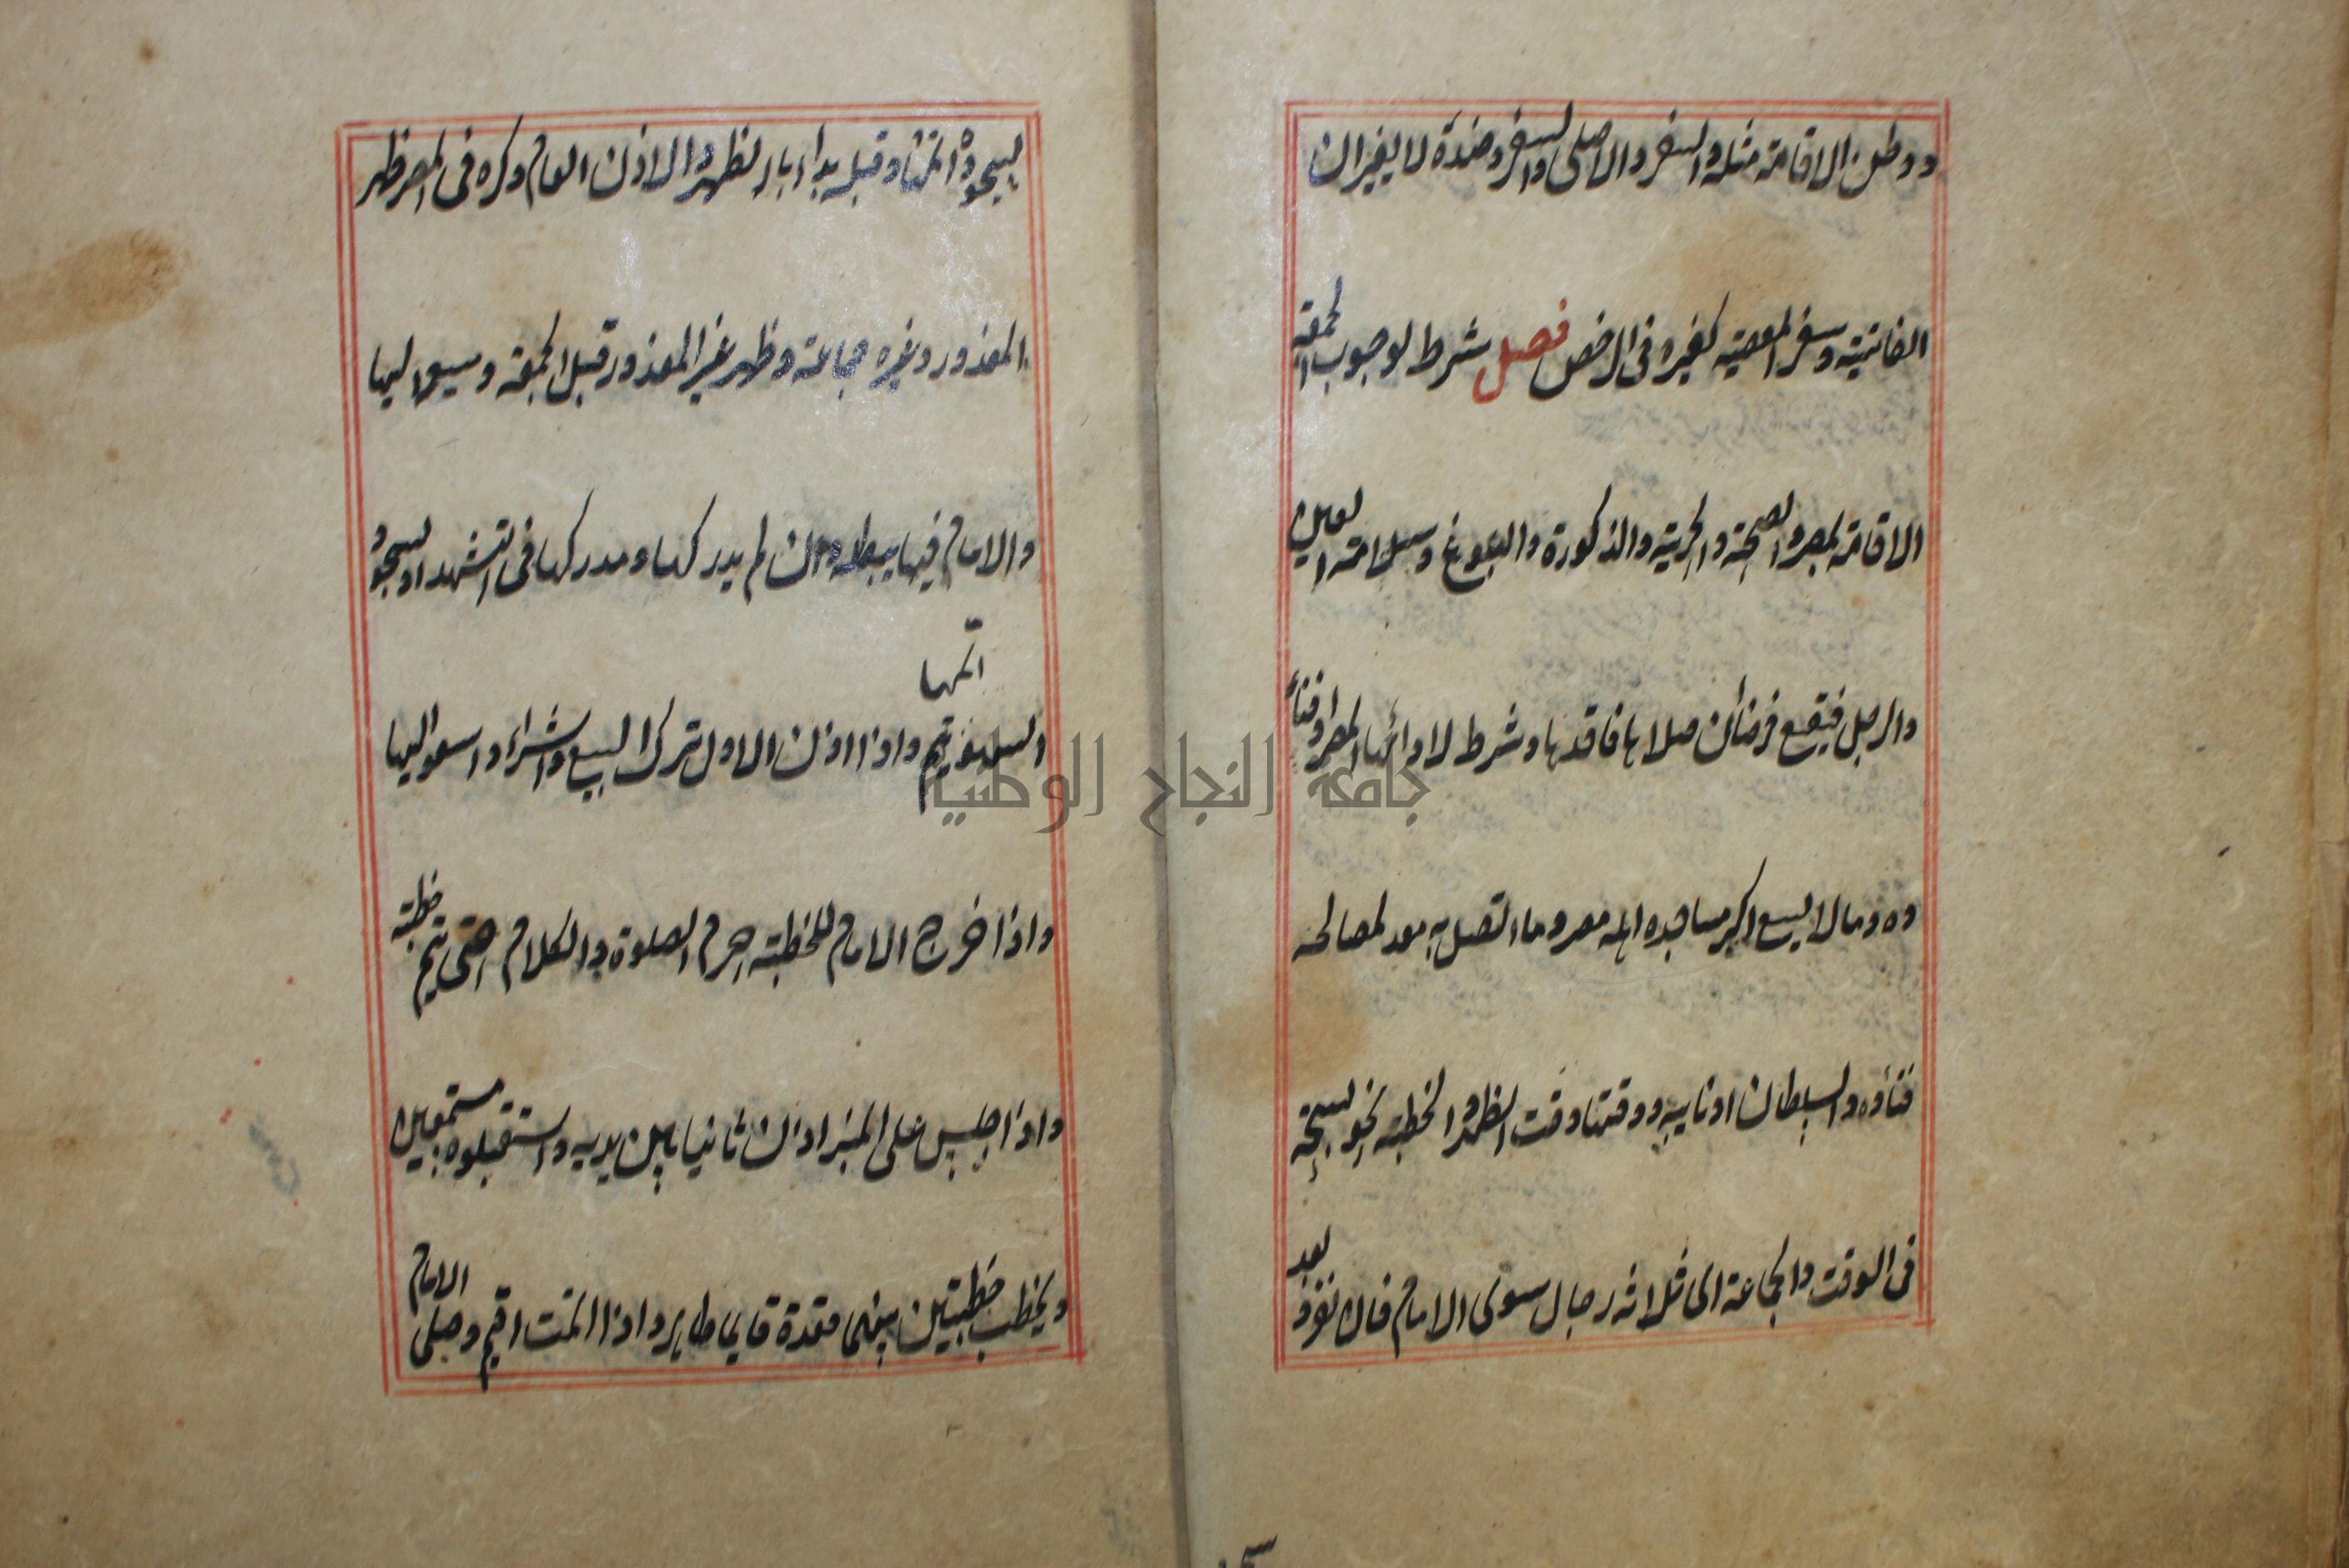 ووطن الاقامة مثله والسفر والاصلى والسفر وضده لا يغيران
الفائتة وسفر المعصية كغيره فى الرخص فصل شرط لوجوب الجمعة
الاقامة بمصر والصحة والحرية والذكورة والبلوغ وسلامة العين
والرجل فيقع فرضا ان صلاها فاقدها وشرط لادائها المصر او فناؤ
ه وما لا يسع اكبر مساجده اهله مصر وما اتصل به معد لمصالحه
فناؤه والسلطان او نايبه ووقتها وقت الظهر والخطبة نحو تسبيحة
فى الوقت والجماعة اى ثلاثة رجال سوى الامام فان نفروا بعد
سجوده اتمها وقبله بداء بالظهر والاذن العام وكره فى المصر ظهر
المعذور وغيره جماعة وظهر غير المعذور قبل الجمعة وسعيه اليها
والامام فيها يبطله وان لم يدركها ومدركها فى التشهد او سجود
اتمها
السهو يتم واذا اذن الاول ترك البيع والشراء واسعوا اليها
واذا خرج الامام للخطبة حرم الصلوة والكلام حتى يتم خطبته
واذا جلس على المنبر اذن ثانيا بين يديه واستقبلوه مستمعين
ويخطب خطبتين بينهما قعدة قايما طاهرا واذا اتمت اقيم وصلى الامام
جامعة النجاح الوطنية